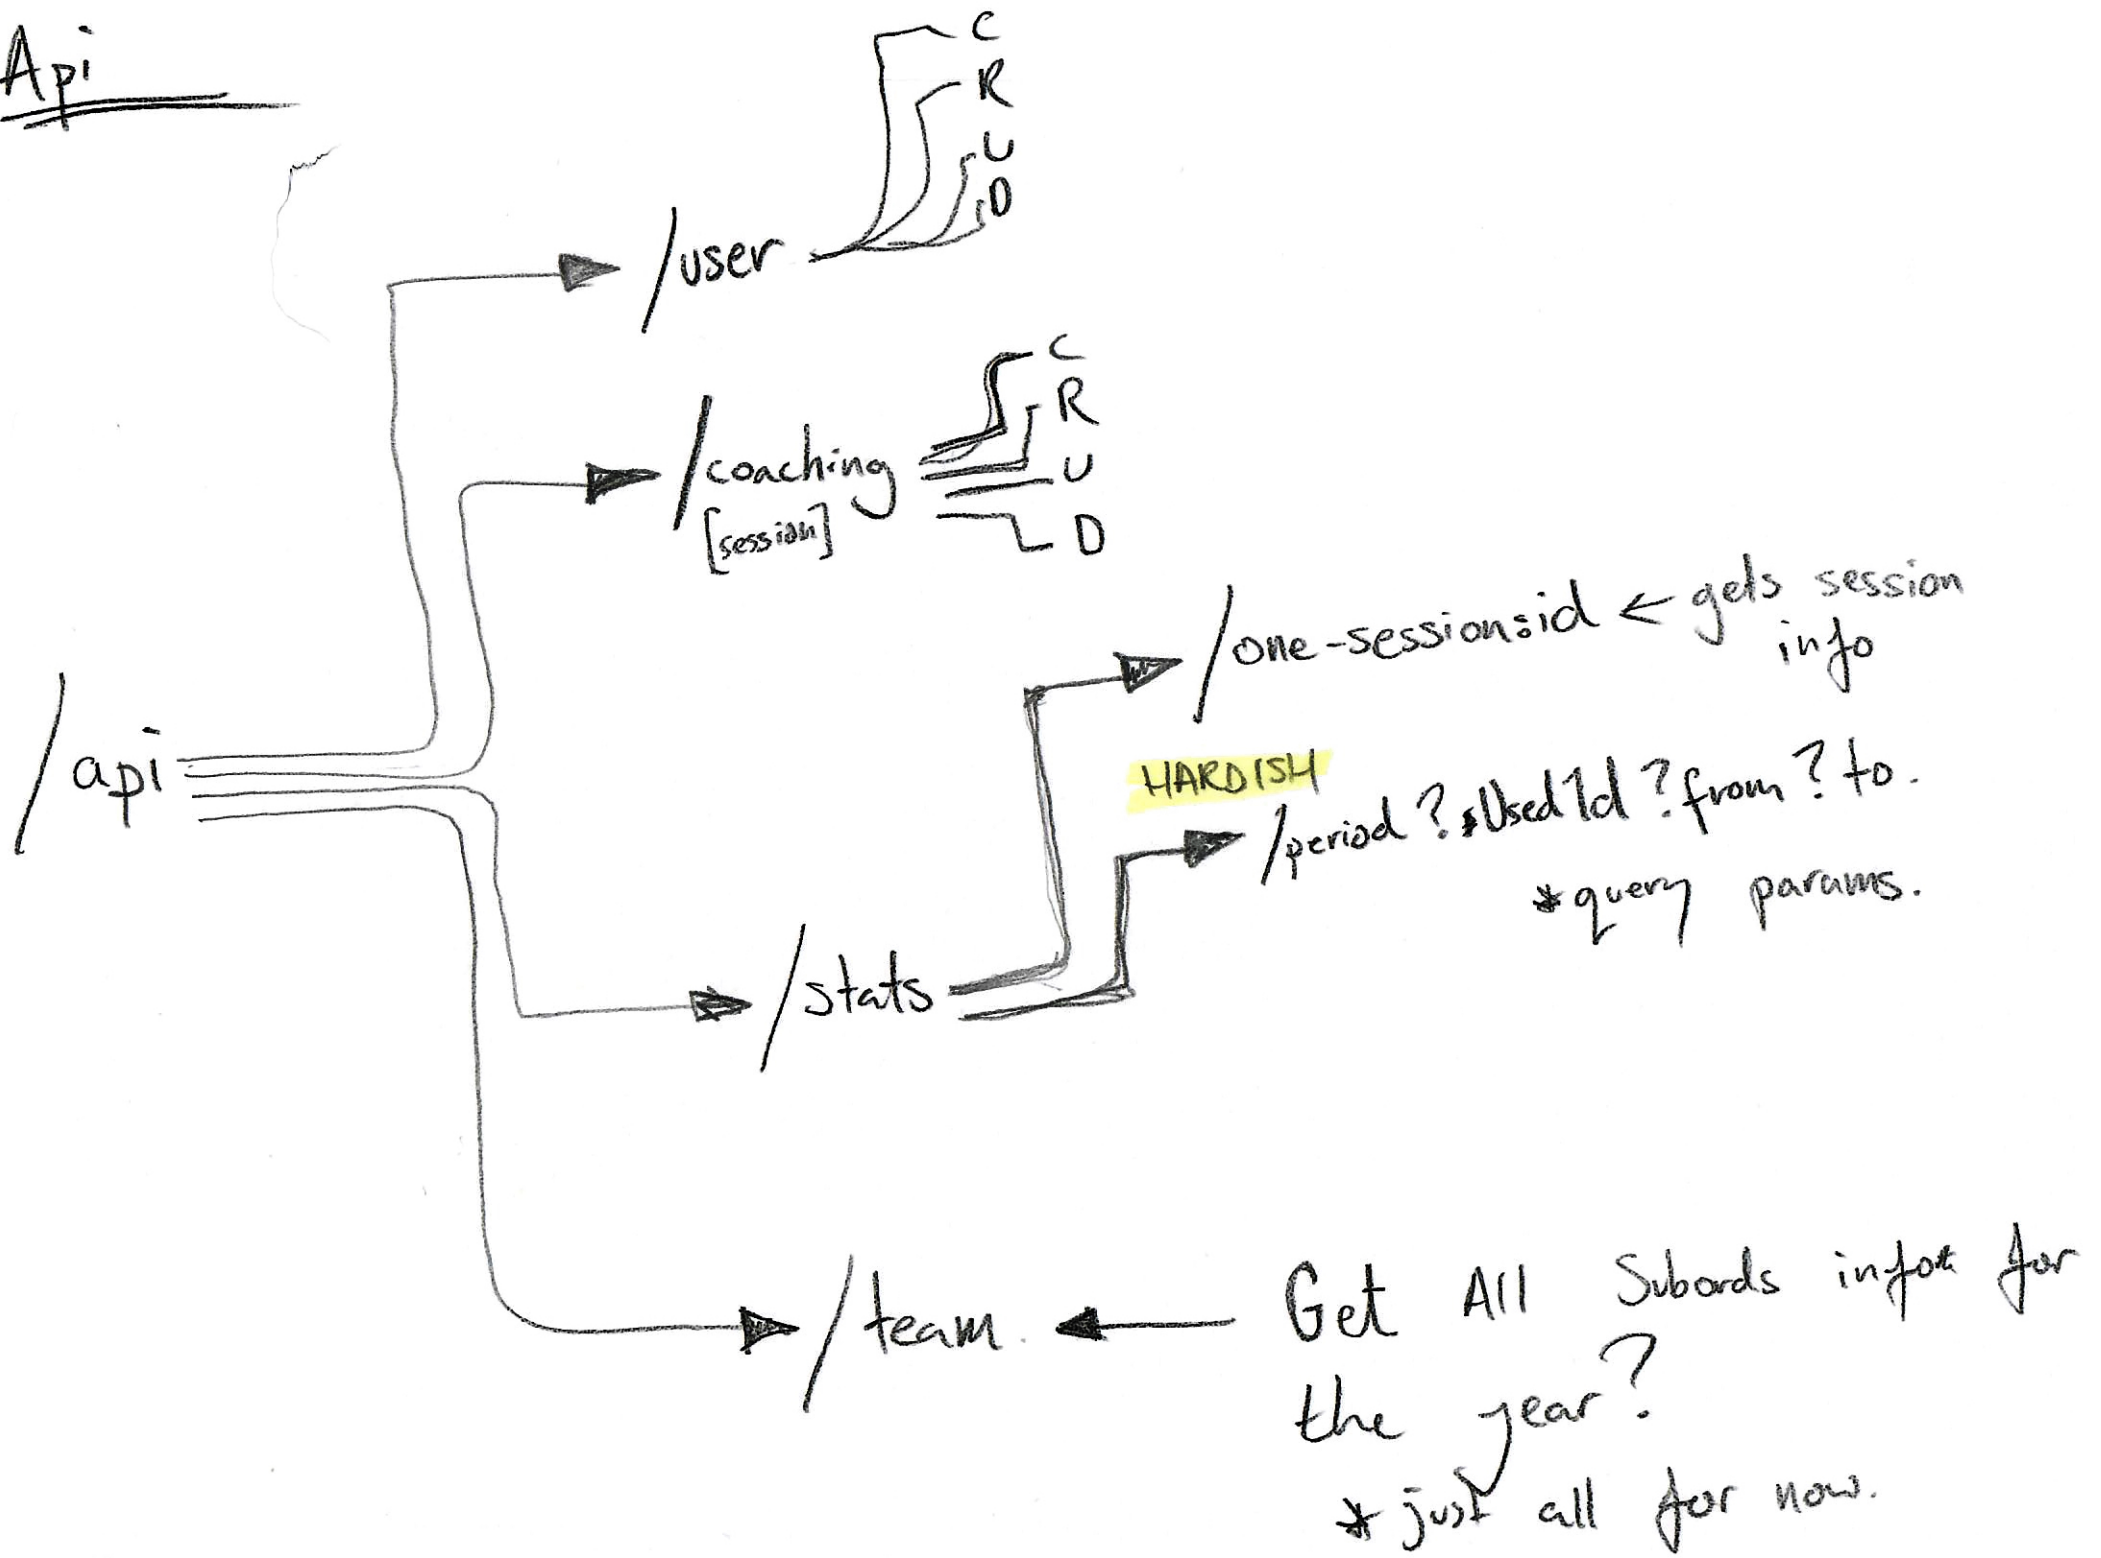 Api
C
R
U
D
/user
C
R
U
D
/coaching
[session]
/one-session:id ← gets session
info
/api
HARDISH
/period ? Used Id ? from ? to.
* query params.
/stats
/team. ← Get All Subords info* for
the year?
* just all for now.